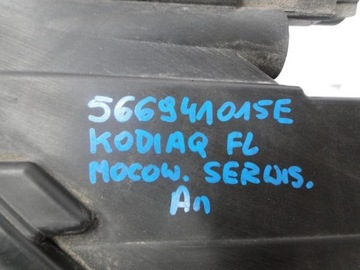 566941015E
KODIAQ FL
MOCOW. SERWIS.
An